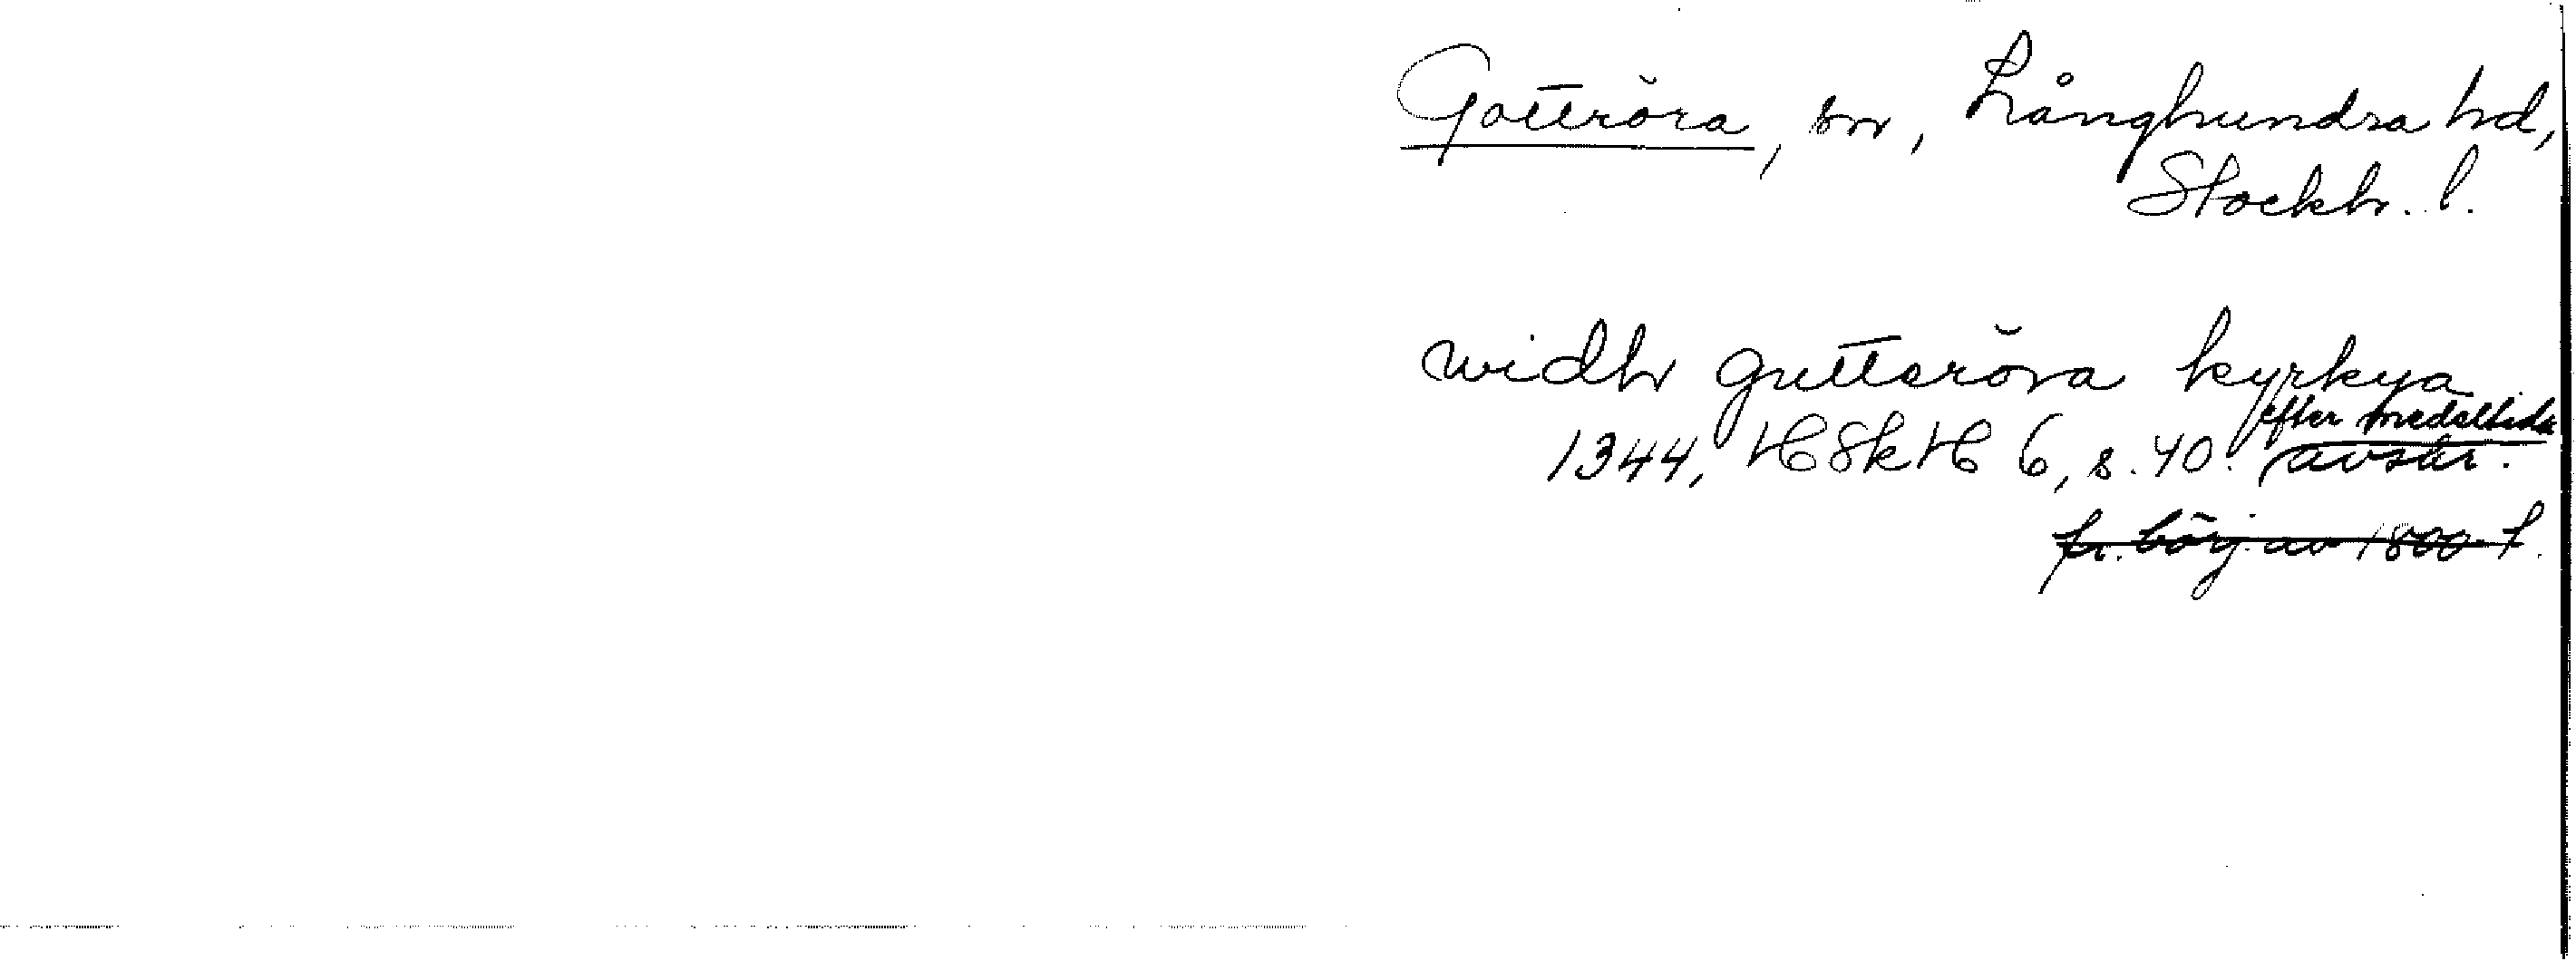 Gottröra, sn, Långhundra hd,
Stockh. l.
widh guttaröra kyrkya
efter medeltida
1344, HSkH 6, s. 40. avskr.
fr. börj. av 1800-t.